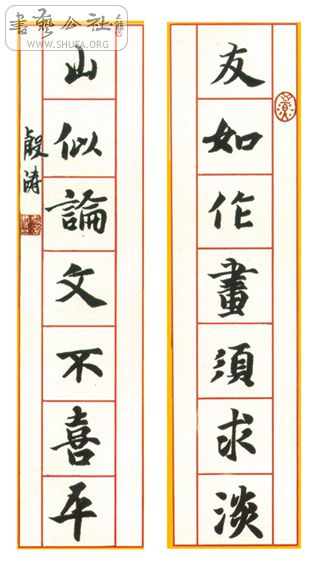 友如作畫須求淡
山似論文不喜平
殷涛
書藝公社
WWW.SHUFA.ORG